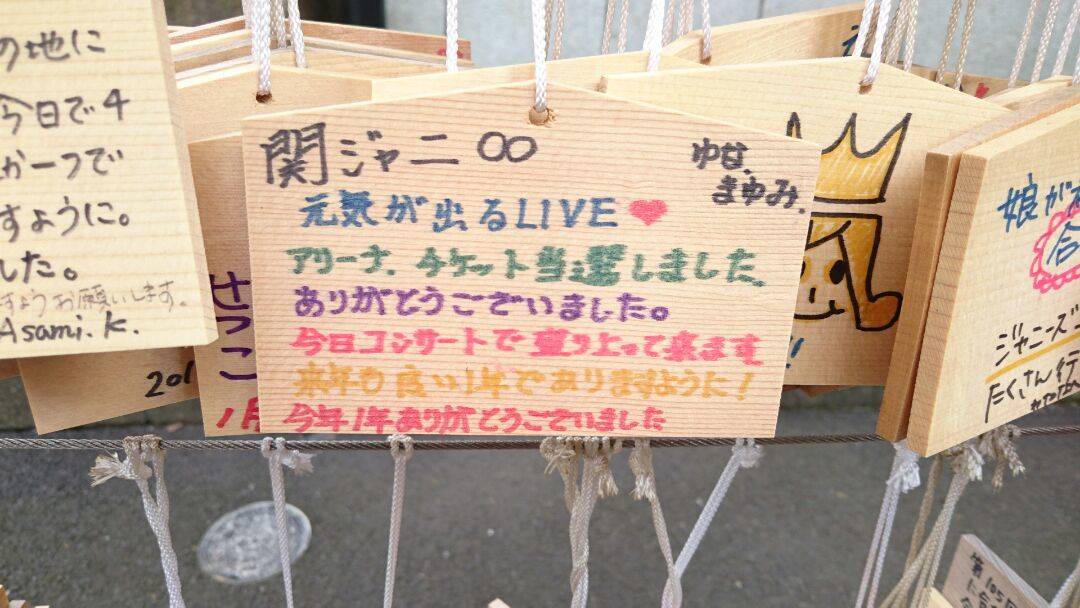 の地に
今日で4
かーつで
すように。
した。
すようお願いします。
Asami.K.
関ジャニ∞
ゆせ、
まゆみ.
元気が出るLIVE♥
アリーナ、チケット当選しました、
ありがとうございました。
今日コンサートで盛り上って来ます
来年も良い1年でありますように!
今年1年ありがとうございました
せつこ
201
1月
娘が
合
ジャニーズ
たくさん
第105